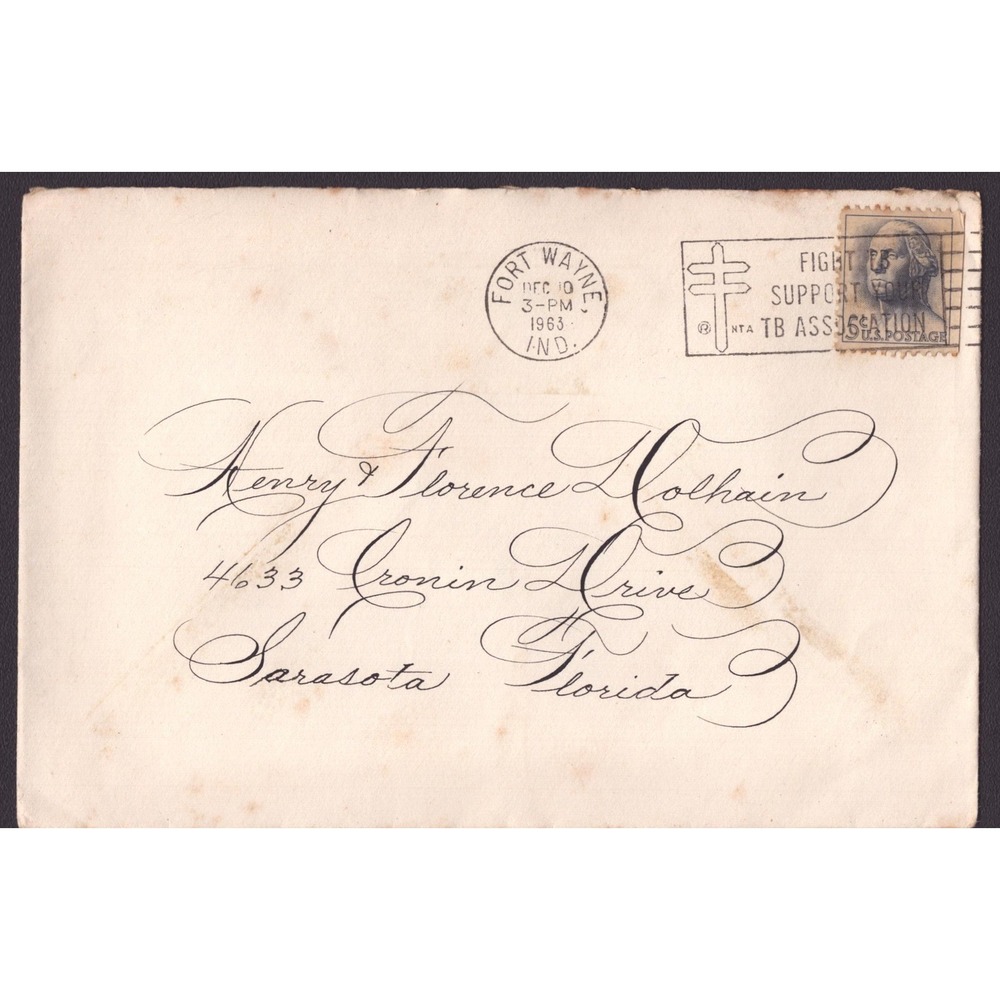 FORT WAYNE,
DEC 10
3-PM
1963
IND.
FIGHT TB
SUPPORT YOUR
® NTA TB ASSOCIATION
5c U.S. POSTAGE
Henry & Florence Dolhain
4633 Cronin Drive
Sarasota Florida